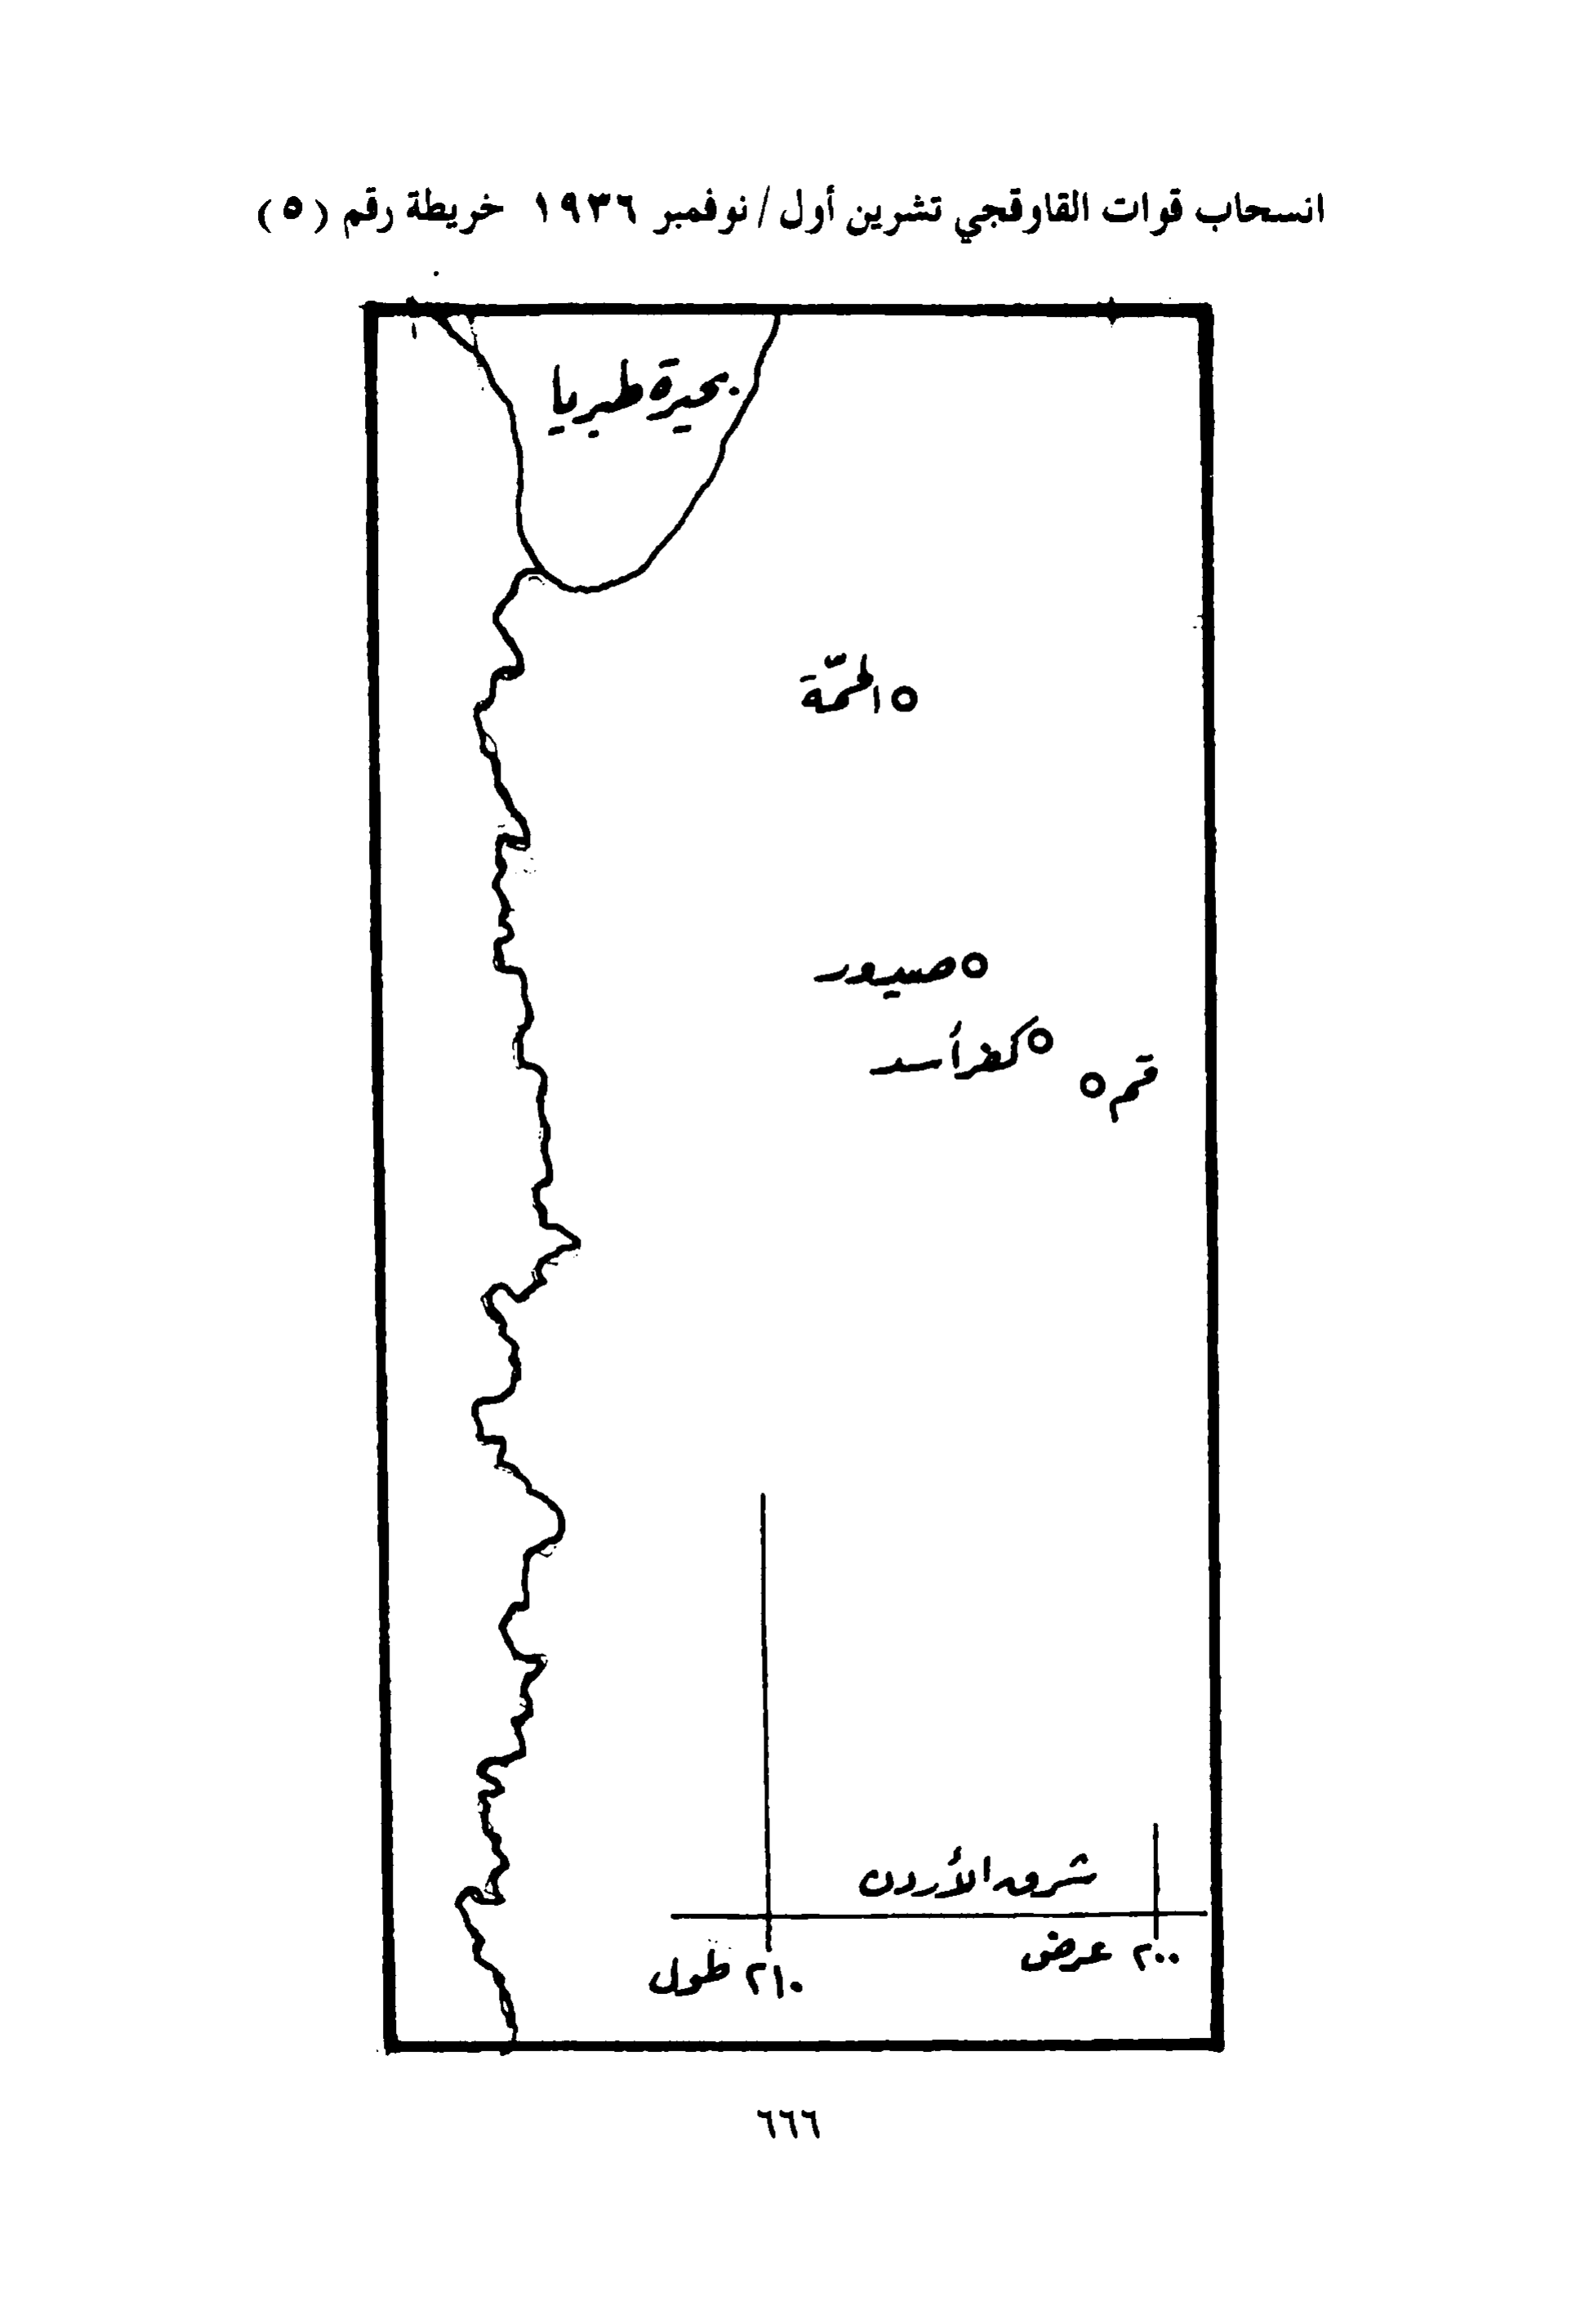 انسحاب قوات القاوقجي تشرين أول / نوفمبر ١٩٣٦ خريطة رقم (٥)
بحيرة طبريا
الحمّة
صيور
كفر أسد
قم
شرق الأردن
٢٠٠ عرض
٢١٠ طول
٦٦٦